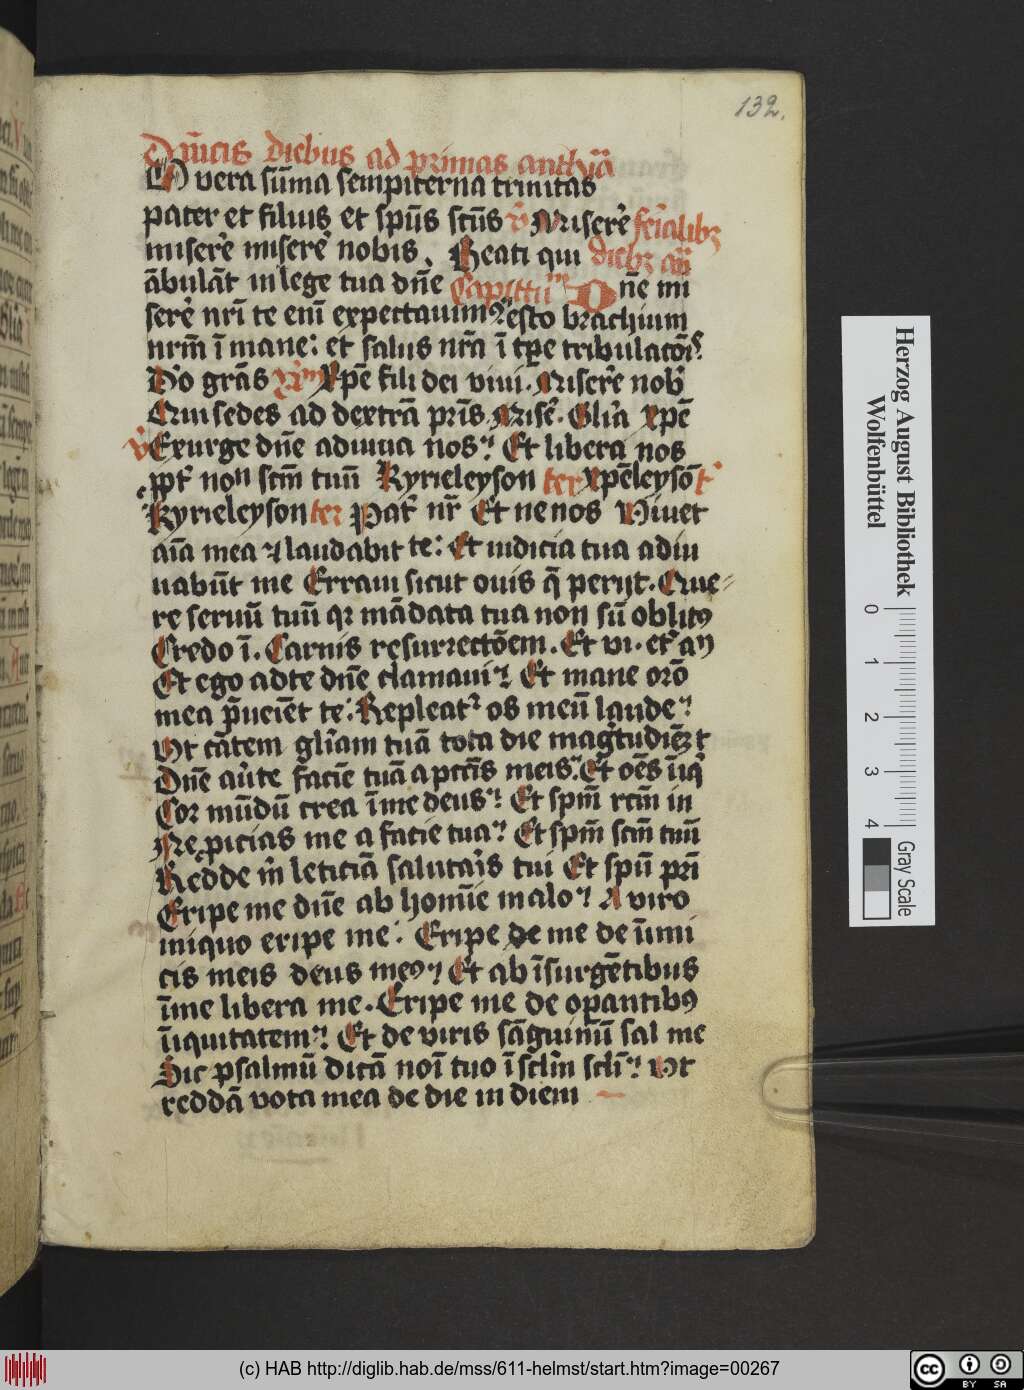 132.
Dn̄icis diebus ad primas anthȳa
O vera sūma sempiterna trinitas
pater et filius et spūs sctūs v̄ Miserē ferīalibꝫ
miserē miserē nobis. Beati qui diebꝫ an̄
ābulāt in lege tua dn̄e Capittū Dn̄e mi
serē nr̄i te enī expectauimꝰ esto brachium
nrm̄ ī mane: et salus nrā ī tp̄e tribulatōīs
Do grās Xpē fili dei viui. Miserē nob̄
Qui sedes ad dextrā pr̄is. Misē. Glīa xpē
v̄ Exurge dn̄e adiuua nos: Et libera nos
ppt̄ non scm̄ tuū Kyrieleyson ter Xpēleysō t̄
Kyrieleyson ter Pat̄ nr̄ Et ne nos Viuet
aīa mea ⁊ laudabit te: Et iudicia tua adiu
uabūt me Erraui sicut ouis q̄ perijt. Que-
re seruū tuū qꝛ mādata tua non sū oblitꝰ
Credo ī. Carnis resurrectōem. Et vi. et̄ am̄
Et ego ad te dn̄e clamaui: Et mane orō
mea p̄ueīet te: Repleat̄ os meū laude:
Vt cātem glīam tuā tota die maḡtudīeꝫ t
Dn̄e aūte faciē tuā a pctīs meis: Et oēs īiq̄
Cor mūdū crea ī me deus: Et spm̄ rcm̄ in
Ne ꝓicias me a facie tua: Et spm̄ scm̄ tuū
Redde m̄ leticiā salutār̄is tui Et spū pr̄i
Eripe me dn̄e ab homīe malo: A viro
iniquo eripe me: Eripe de me de īimi
cis meis deus meꝰ: Et ab īsurgētibus
ī me libera me. Eripe me de opantibꝰ
īiquitatem: Et de viris sāguinū sal me
Sic psalmū dicā noī tuo ī sclīn sclī: Vt
reddā vota mea de die in diem
Herzog August Bibliothek
Wolfenbüttel
0 1 2 3 4
Gray Scale
(c) HAB http://diglib.hab.de/mss/611-helmst/start.htm?image=00267
cc BY SA